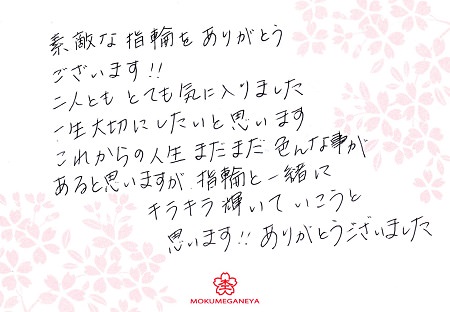 素敵な指輪をありがとう
ございます!!
二人とも とても気に入りました
一生大切にしたいと思います
これからの人生 まだまだ 色んな事が
あると思いますが、指輪と一緒に
キラキラ輝いていこうと
思います!! ありがとうございました
MOKUMEGANEYA